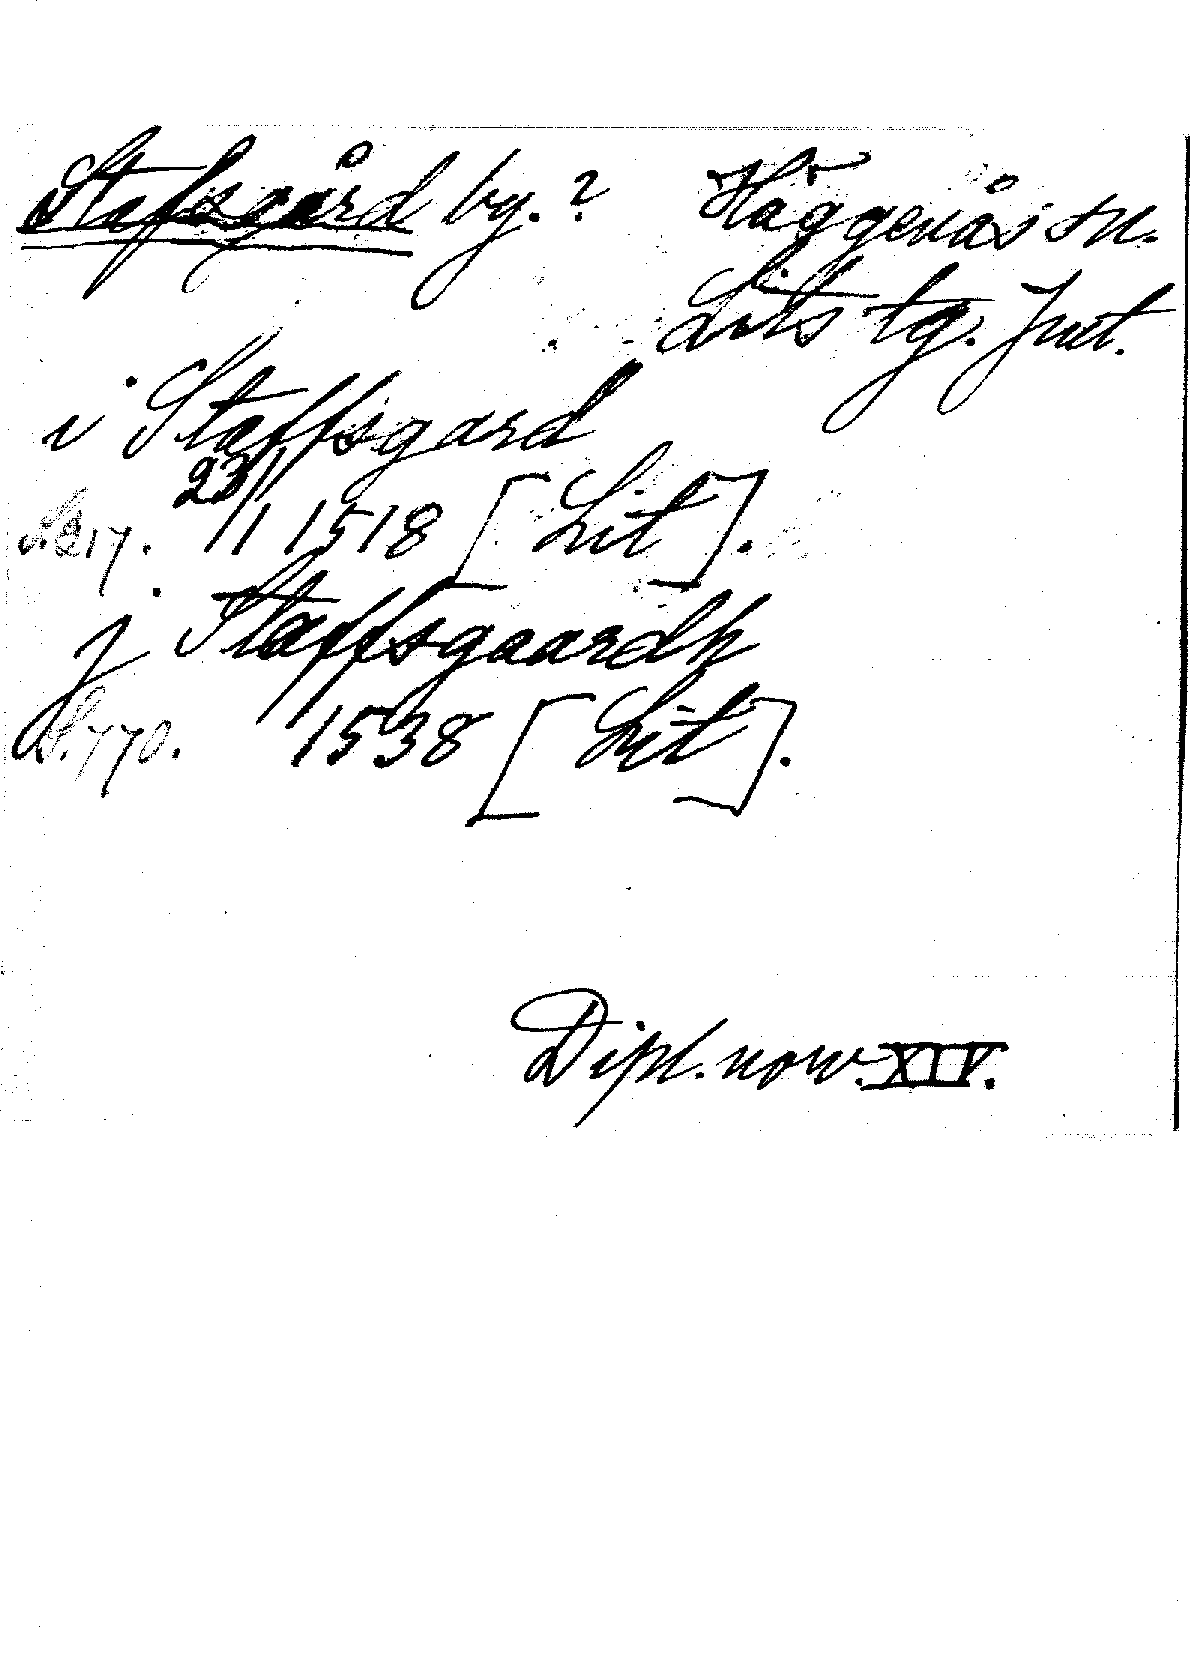 Stafsgård by.? Häggenås sn.
Lits tg. Jmt.
i Staffsgard
S. 217. 23/1 1518 [Lit].
j Staffsgaardh
S. 770. 1538 [Lit].
Dipl. norv. XIV.